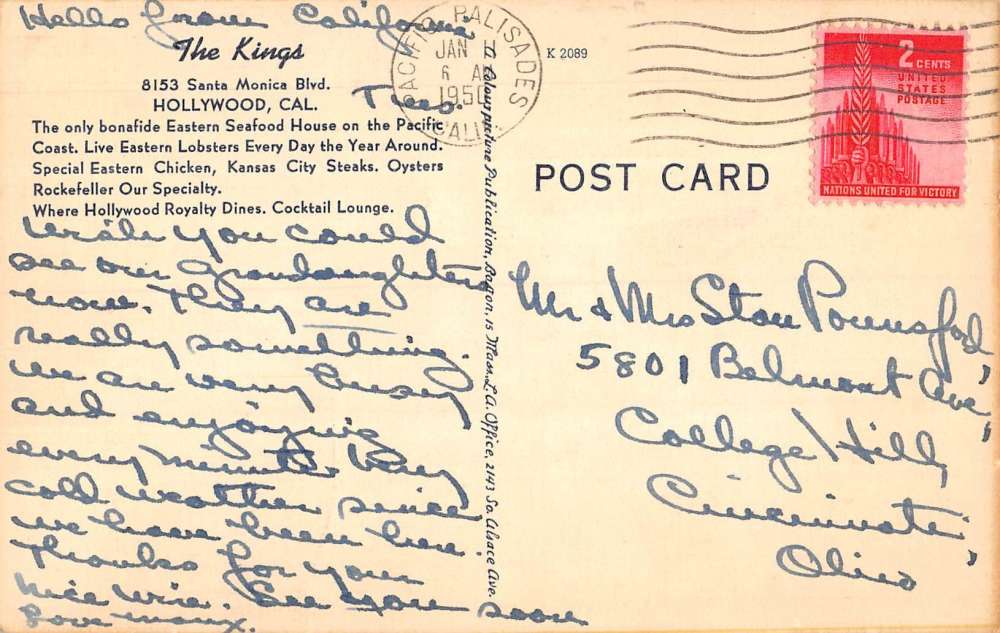 Hello from California
The Kings
8153 Santa Monica Blvd.
HOLLYWOOD, CAL.
Tues.
The only bonafide Eastern Seafood House on the Pacific
Coast. Live Eastern Lobsters Every Day the Year Around.
Special Eastern Chicken, Kansas City Steaks. Oysters
Rockefeller Our Specialty.
Where Hollywood Royalty Dines. Cocktail Lounge.
Wish you could
see our Grandaughters
now. They are
really something.
We are very busy
and enjoying
every minute. Very
cold weather since
we have been here.
Thanks for your
nice wire. See you soon
Love
PACIFIC PALISADES
JAN
6 AM
1950
CALIF
K 2089
Colourpicture Publication, Boston, 15 Mass. L.A. Office, 2143 So. Alsace Ave.
2 CENTS
UNITED
STATES
POSTAGE
NATIONS UNITED FOR VICTORY
POST CARD
Mr & Mrs Stan
5801 Belmont Ave,
College Hill,
Cincinnati,
Ohio